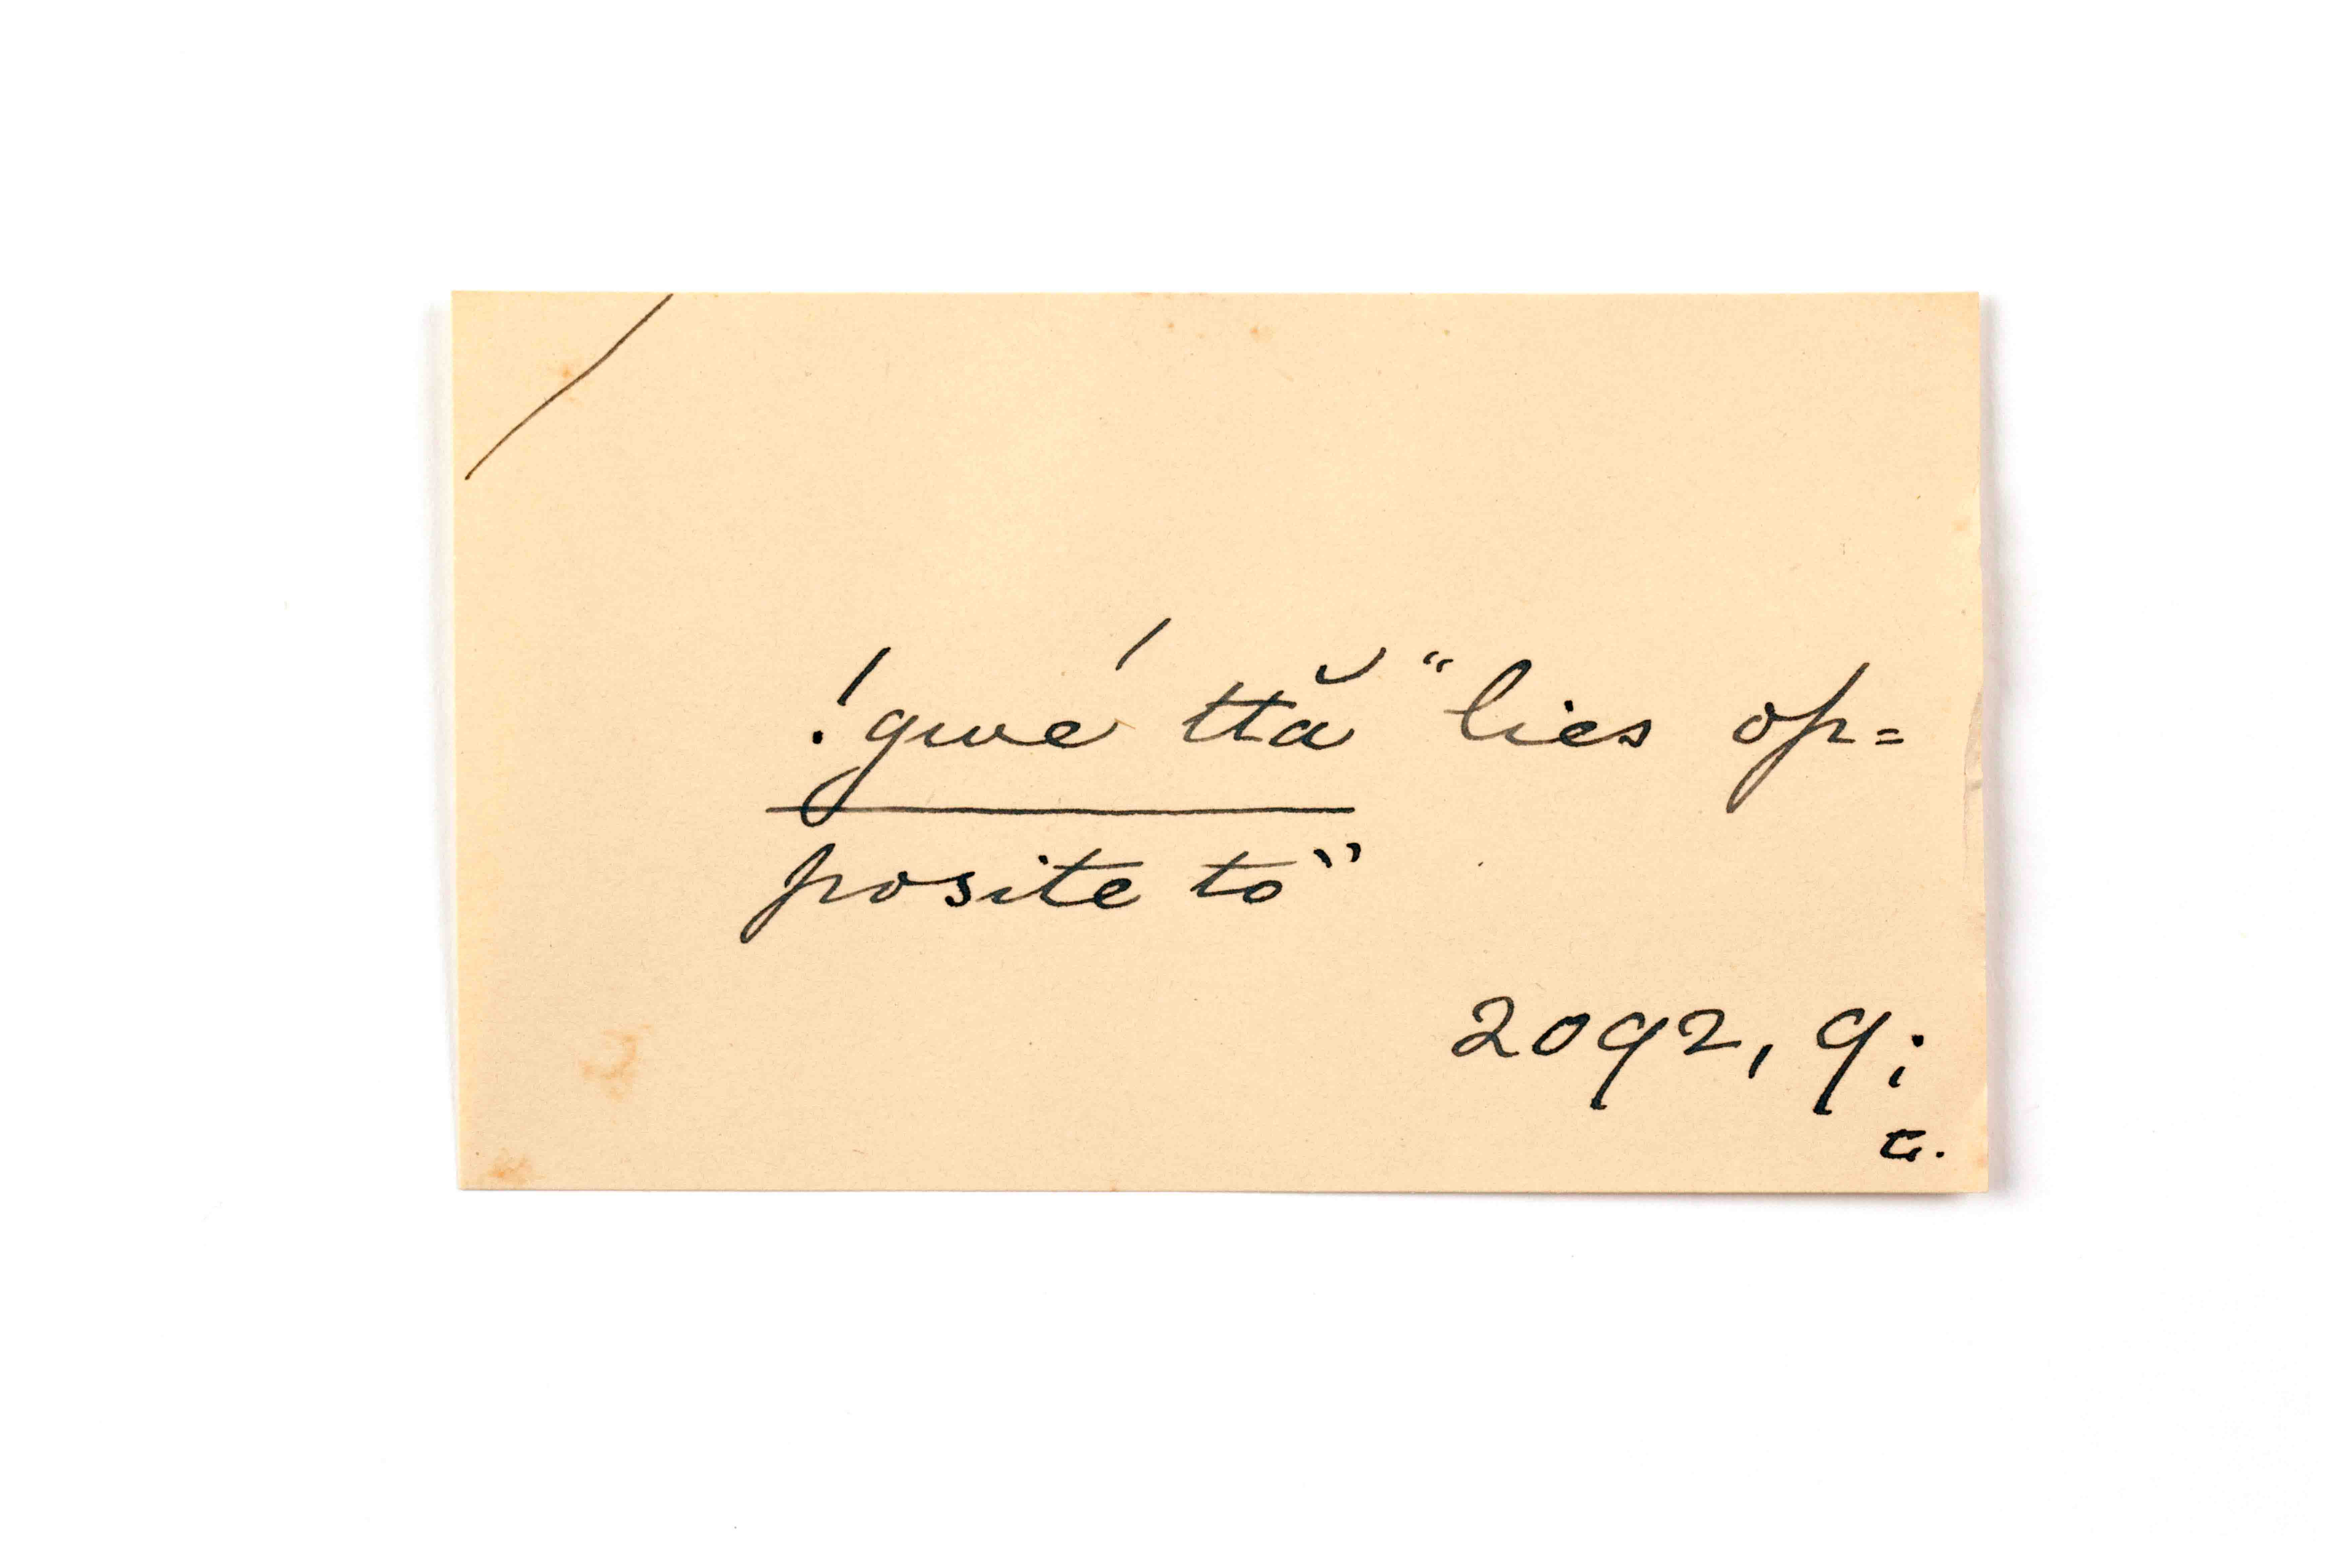 !gwé ttă "lies op=
posite to"
2092, 9;